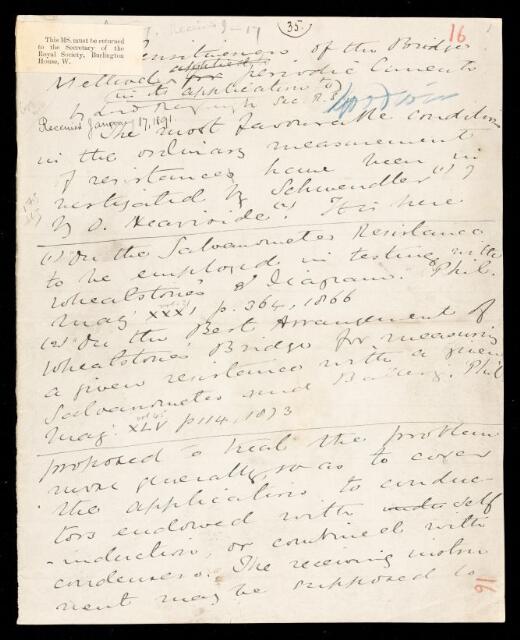 This MS. must be returned
to the Secretary of the
Royal Society, Burlington
House, W.
35.
16
Sensitiveness of the Bridge
Method applied for Periodic Currents
in its application to
by Lord Rayleigh Sec. R.S.
Received January 17, 1891.
The most favourable conditions
in the ordinary measurement
of resistances have been in
vestigated by Schwendler (1) &
by O. Heaviside (2). It is here
(1) On the Galvanometer Resistance
to be employed in testing with
Wheatstone's Diagram. Phil.
Mag. XXXI p. 364, 1866
(2) On the Best Arrangement of
Wheatstone's Bridge for measuring
a given resistance with a given
Galvanometer and Battery, Phil
Mag. XLV p 114, 1873
proposed to treat the problem
more generally, so as to cover
the application to conduc-
tors endowed with self
-induction, or combined with
condensers. The receiving instru
ment may be supposed to
16